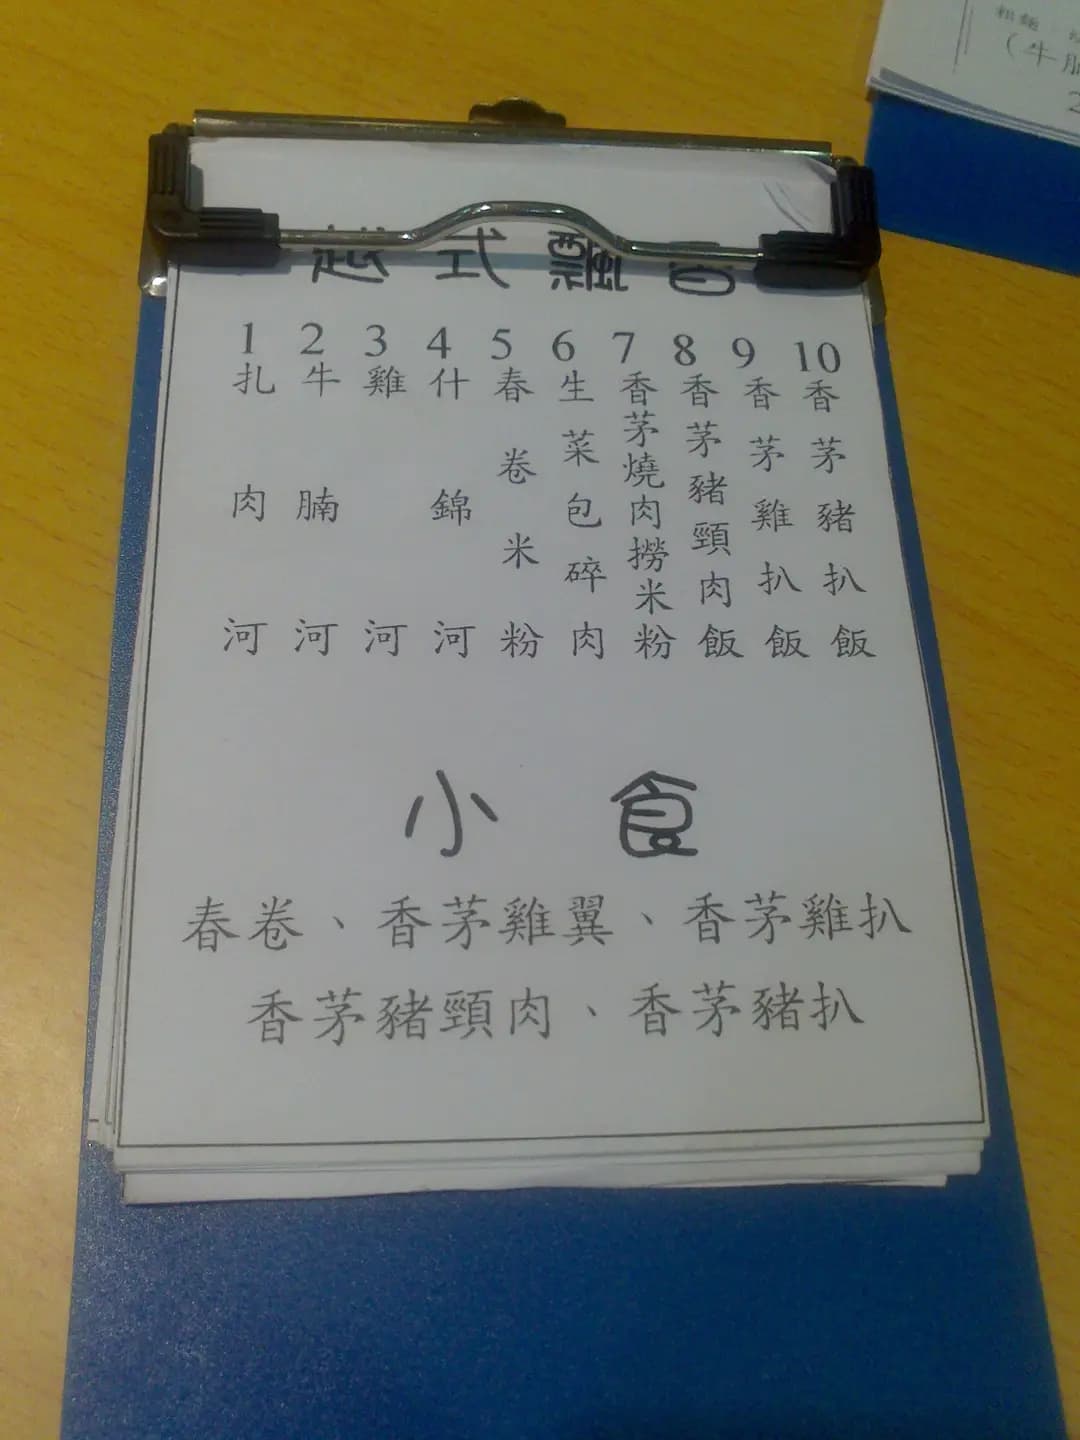 越式飄香
1 扎肉河
2 牛腩河
3 雞河
4 什錦河
5 春卷米粉
6 生菜包碎肉
7 香茅燒肉撈米粉
8 香茅豬頸肉飯
9 香茅雞扒飯
10 香茅豬扒飯
小食
春卷、香茅雞翼、香茅雞扒
香茅豬頸肉、香茅豬扒
粗麵
(牛腩
2